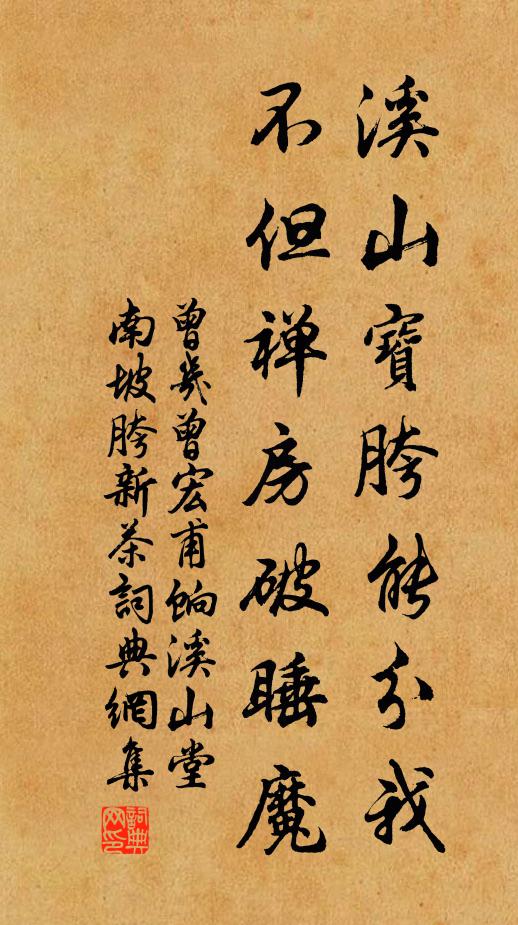 溪山寶胯能分我
不但禅房破睡魔
曾幾曾宏甫餉溪山堂
南坡胯新茶詞典網集
詞典网印